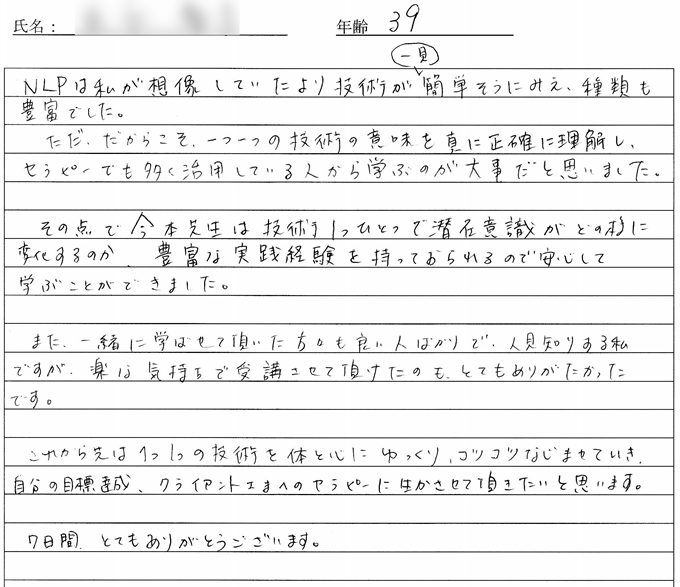 氏名：
年齢 39
一見
NLPは私が想像していたより技術が簡単そうにみえ、種類も
豊富でした。
ただ、だからこそ、一つ一つの技術の意味を真に正確に理解し、
セラピーでも多く活用している人から学ぶのが大事だと思いました。
その点で今本先生は技術1つひとつで潜在意識がどの様に
変化するのか、豊富な実践経験を持っておられるので安心して
学ぶことができました。
また、一緒に学ばせて頂いた方々も良い人ばかりで、人見知りする私
ですが、楽な気持ちで受講させて頂けたのも、とてもありがたかった
です。
これから先は1つ1つの技術を体と心にゆっくり、コツコツなじませていき、
自分の目標達成、クライアントさまへのセラピーに生かさせて頂きたいと思います。
7日間、とてもありがとうございます。